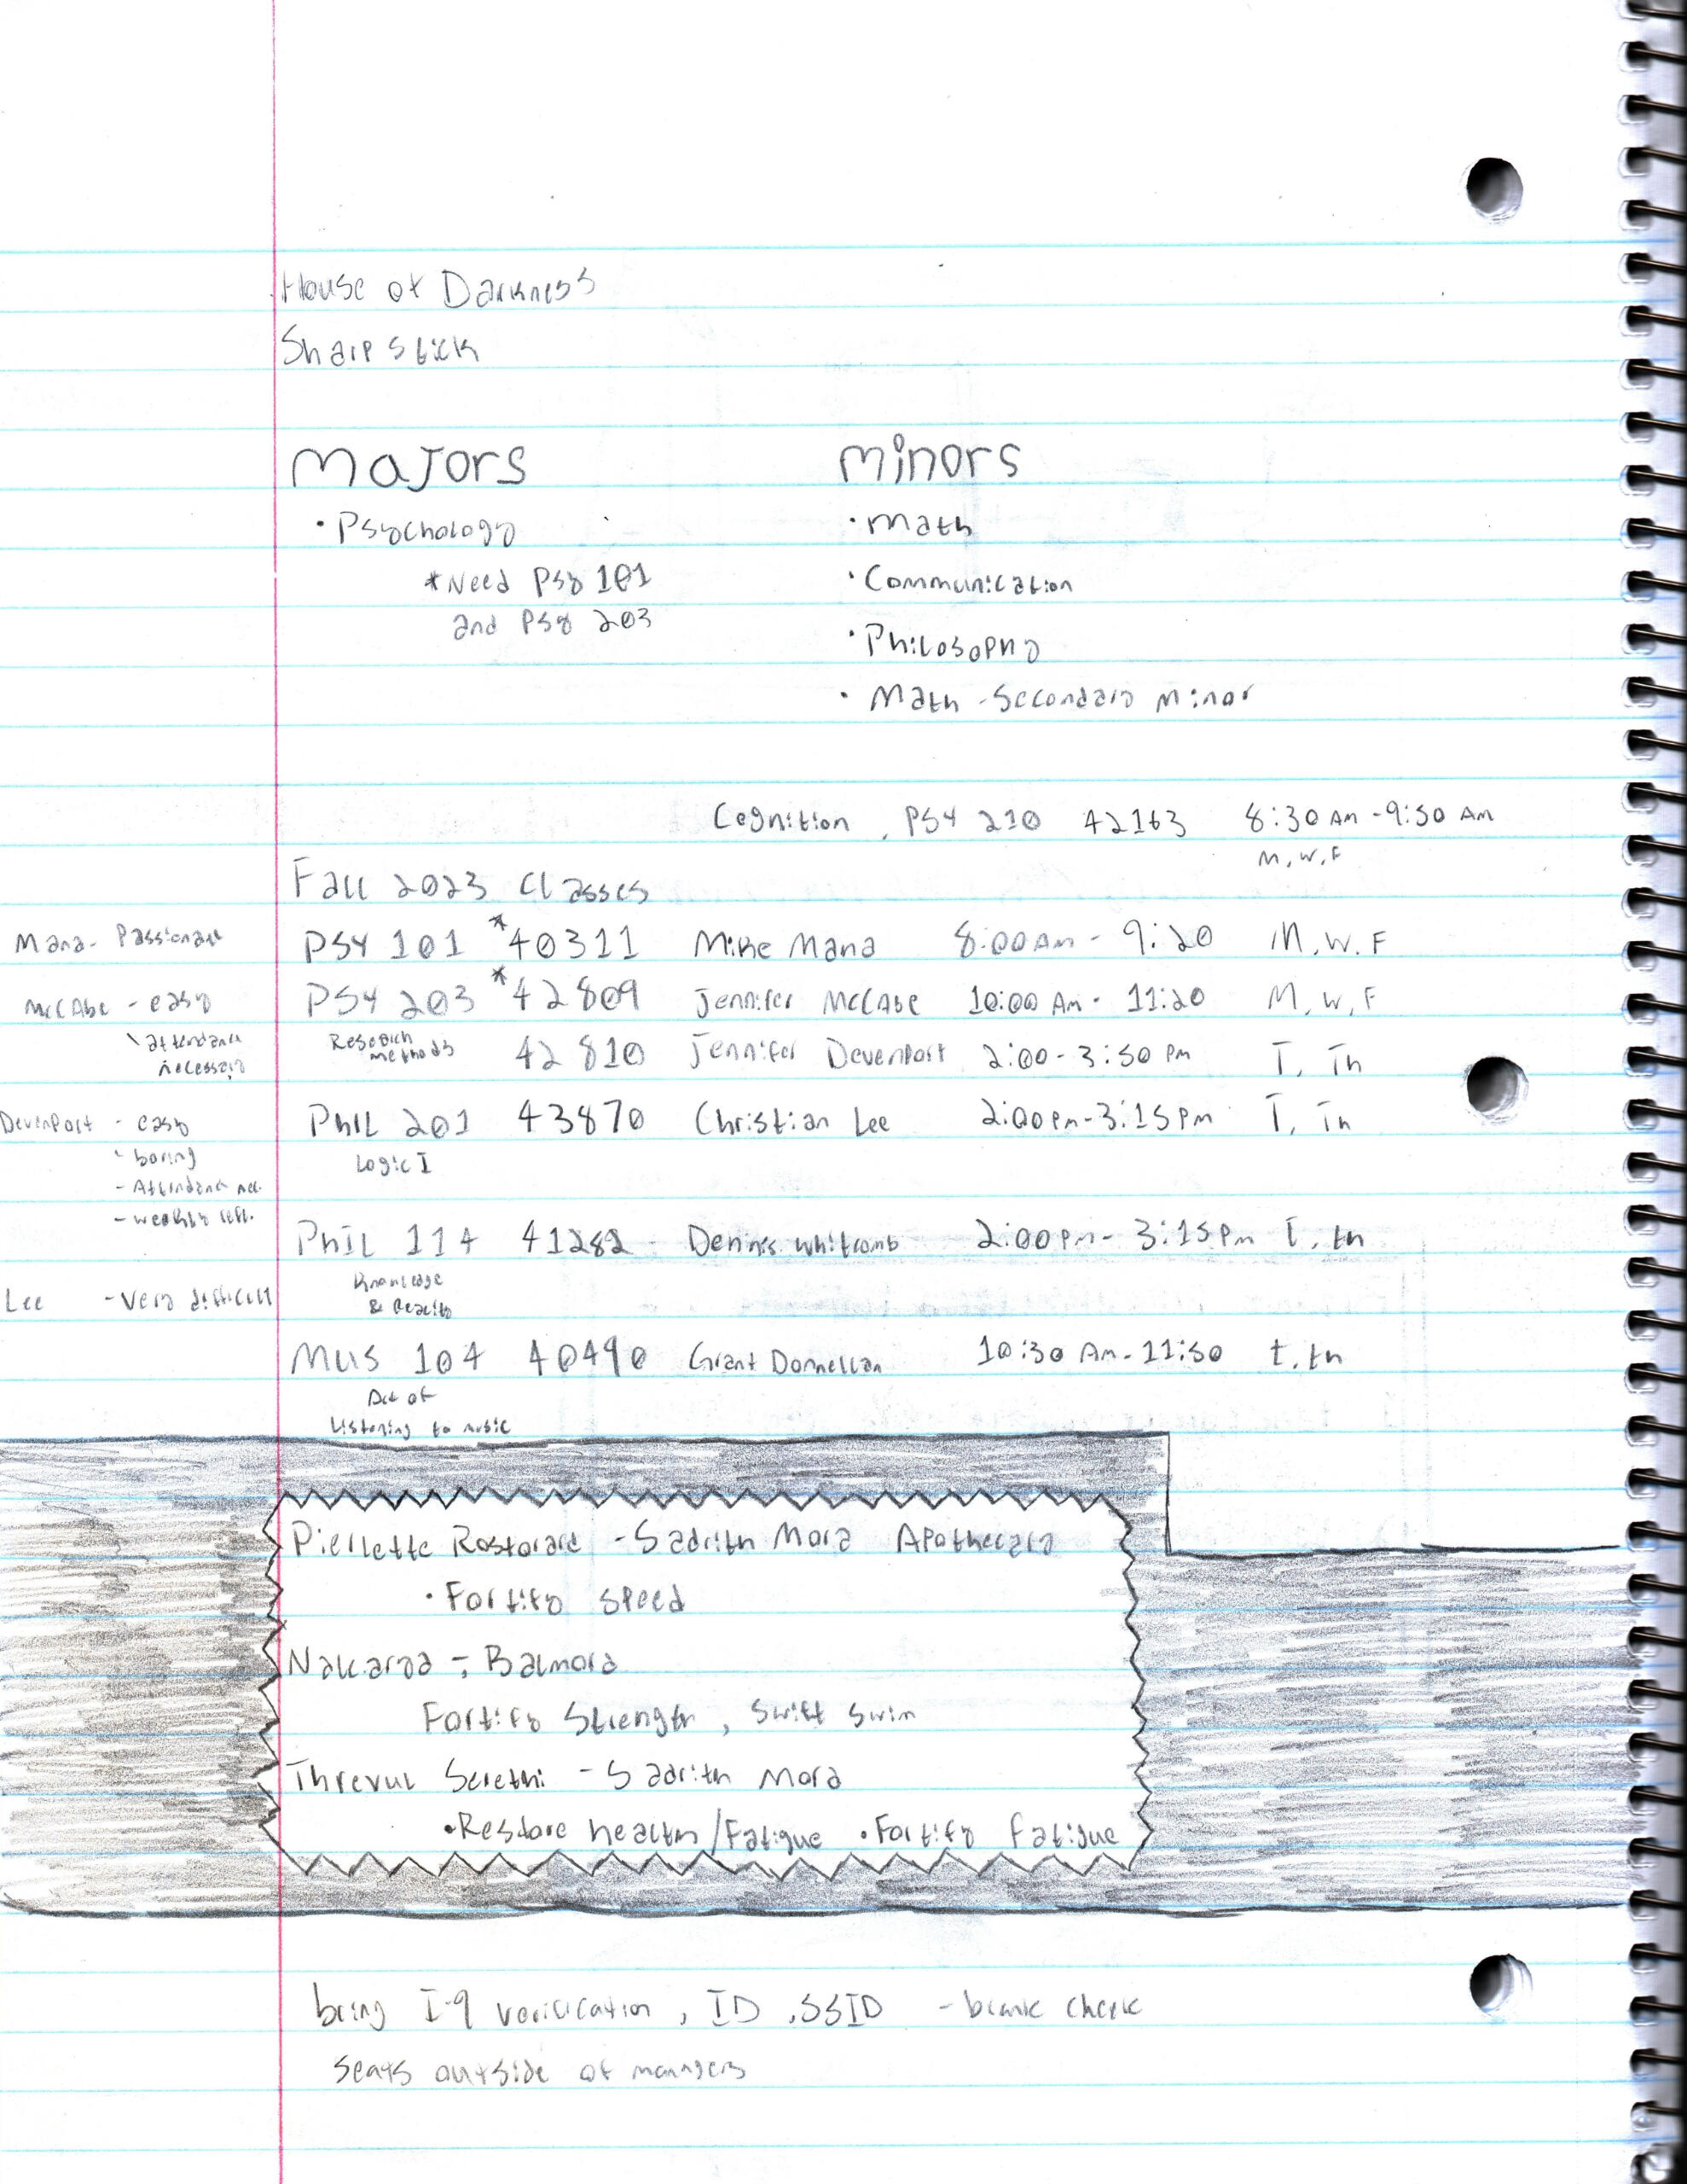 House of Darkness
Sharp Stick
Majors
Minors
• Psychology
*Need Psy 101
and Psy 203
• Math
• Communication
• Philosophy
• Math - Secondary Minor
Cognition, PSY 210 42163 8:30 AM - 9:50 AM
M, W, F
Fall 2023 Classes
Mana - Passionate
PSY 101 *40311 Mike Mana 8:00 AM - 9:20 M, W, F
McCabe - easy
\ attendance
necessary
PSY 203 *42809 Jennifer McCabe 10:00 AM - 11:20 M, W, F
Research
methods
42810 Jennifer Devenport 2:00 - 3:50 PM T, Th
Devenport - easy
- boring
- Attendance nec.
- weekly
PHIL 201 43870 Christian Lee 2:00 PM - 3:15 PM T, Th
Logic I
PHIL 114 41282 Dennis Whitcomb 2:00 PM - 3:15 PM T, th
Knowledge
& Reality
Lee - Very difficult
MUS 104 40490 Grant Donnellan 10:30 AM - 11:50 t, th
Art of
Listening to music
Pierlette Rostorard - Sadrith Mora Apothecary
• Fortify Speed
Nalcarya - Balmora
Fortify Strength, Swift Swim
Threvul Serethi - Sadrith Mora
• Restore health/Fatigue • Fortify fatigue
bring I-9 verification, ID, SSID - blank check
Seats outside of managers